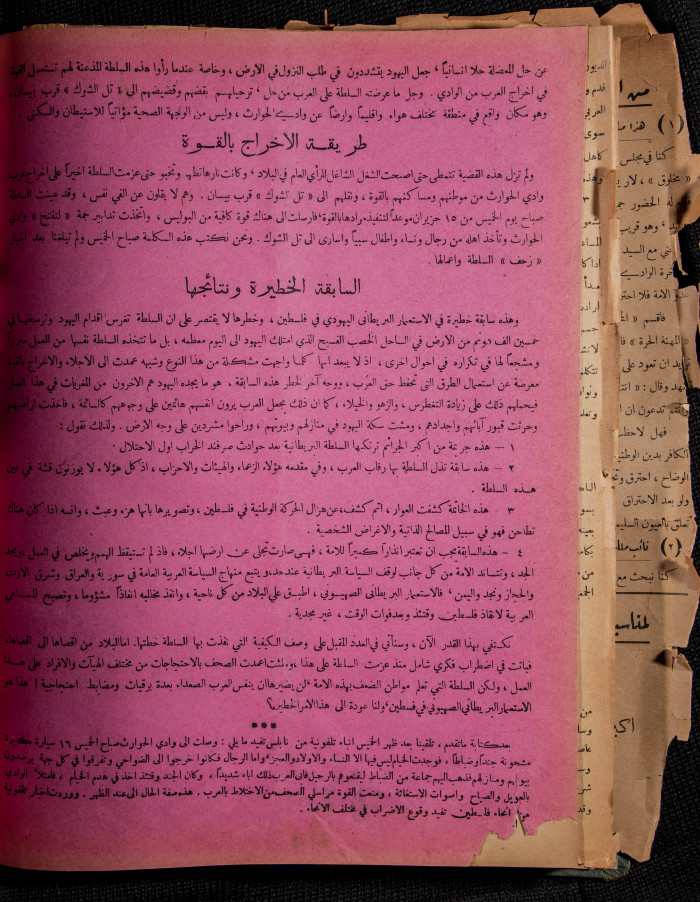 عن حل المعضلة حلا انسانياً ، جعل اليهود يتشددون في طلب النزول في الارض ، وخاصة عندما رأوا هذه السلطة المذعنة لهم تستعمل القوة
في اخراج العرب من الوادي . وجل ما عرضته السلطة على العرب من حل ، ترحيلهم بقضهم وقضيضهم الى « تل الشوك » قرب بيسان ،
وهو مكان واقع في منطقة تختلف هواء واقليما وارضاً عن وادي الحوارث ، وليس من الوجهة الصحية مؤاتياً للاستيطان والسكنى .
طريقة الاخراج بالقوة
ولم تزل هذه القضية تتمطى حتى اصبحت الشغل الشاغل للرأي العام في البلاد ، وكانت نارها تظهر وتخبو حتى عزمت السلطة اخيراً على اخراج عرب
وادي الحوارث من موطنهم ومساكنهم بالقوة ، ونقلهم الى « تل الشوك » قرب بيسان . وهم لا يقلون عن الفي نفس ، وقد عينت السلطة
صباح يوم الخميس من ١٥ حزيران موعداً لتنفيذ مرادها بالقوة ، فارسلت الى هناك قوة كافية من البوليس ، واتخذت تدابير جمة « لتفتح » وادي
الحوارث وتأخذ اهله من رجال ونساء واطفال سبياً واسارى الى تل الشوك . ونحن نكتب هذه الكلمة صباح الخميس ولم تبلغنا بعد اخبار
« زحف » السلطة واعمالها .
السابقة الخطيرة ونتائجها
وهذه سابقة خطيرة في الاستعمار البريطاني اليهودي في فلسطين ، وخطرها لا يقتصر على ان السلطة تغرس اقدام اليهود وترسخها في
خمسين الف دونم من الارض في الساحل الخصب الفسيح الذي امتلك اليهود الى اليوم معظمه ، بل ما تتخذه السلطة نفسها من العمل مبرراً
ومشجعاً لها في تكراره في احوال اخرى ، اذ لا يبعد انها كلما واجهت مشكلة من هذا النوع وشبهه عمدت الى الاجلاء والاخراج بالقوة
معرضة عن استعمال الطرق التي تحفظ حق العرب ، ووجه آخر لخطر هذه السابقة ، هو ما يجده اليهود هم الآخرون من المغريات في هذا العمل
فيحملهم ذلك على زيادة التغطرس ، والزهو والخيلاء ، كما ان ذلك يجعل العرب يرون انفسهم هائمين على وجوههم كالسائمة ، فأخذت اراضيهم
وحرثت قبور آبائهم واجدادهم ، ومشت سكة اليهود في منازلهم وبيوتهم ، وراحوا مشردين على وجه الارض . ولذلك نقول :
١ – هذه جريمة من اكبر الجرائم ترتكبها السلطة البريطانية بعد حوادث صرفند الخراب اول الاحتلال .
٢ – هذه سابقة تذل السلطة بها رقاب العرب ، وفي مقدمه هؤلاء الزعماء والهيئات والاحزاب ، اذ كل هؤلاء لا يوزنون قشة في عين
هذه السلطة .
٣ – هذه الخاتمة كشفت العوار ، اتم كشف ، عن هزال الحركة الوطنية في فلسطين ، وتصويرها بانها هزء وعبث ، وانه اذا كان هناك
تطاحن فهو في سبيل المصالح الذاتية والاغراض الشخصية .
٤ – هذه السابقة يجب ان تعتبر انذاراً كبيراً للامة ، فهي صارت تجلى عن ارضها اجلاء ، فاذ لم تستيقظ الهمم ويخلص في العمل ، ويجد
الجد ، وتتساند الامة من كل جانب لوقف السياسة البريطانية عند حد ، ويتبع منهاج السياسة العربية العامة في سورية والعراق وشرق الاردن
والحجاز ونجد واليمن ، فالاستعمار البريطاني الصهيوني ، اطبق على البلاد من كل ناحية ، وانفذ مخالبه انفاذاً مشؤوما ، وتصبح المساعي
العربية لانقاذ فلسطين وقتئذ وبعد فوات الوقت ، غير مجدية .
نكتفي بهذا القدر الآن ، وسنأتي في العدد المقبل على وصف الكيفية التي نفذت بها السلطة خطتها. اما البلاد من اقصاها الى اقصاها،
فباتت في اضطراب فكري شامل منذ عزمت السلطة على هذا ، وملئت اعمدة الصحف بالاحتجاجات من مختلف الهيآت والافراد على هذا
العمل ، ولكن السلطة التي تعلم مواطن الضعف بهذه الامة ، لن يضيرها ان ينفس العرب الصعداء بعدة برقيات ومضابط احتجاجية ! هذا هو
الاستعمار البريطاني الصهيوني في فلسطين ، ولنا عودة الى هذا الامر الخطير ؟
***
بعد كتابة ما تقدم ، تلقينا بعد ظهر الخميس انباء تلفونية من نابلس تفيد ما يلي : وصلت الى وادي الحوارث صباح الخميس ١٦ سيارة كبيرة
مشحونة جنداً وضباطا ، فوجدت الخيام ليس فيها الا النساء والاولاد والعجز واما الرجال فكانوا خرجوا الى الضواحي وتفرقوا في كل جهة يرصدون
بيوتهم ومنازلهم فذهب اليهم جماعة من الضباط ليقنعوهم بالرحيل فابى العرب ذلك اباء شديداً ، وكان الجند وقتئذ اخذ في هدم الخيام ، فامتلأ الوادي
بالعويل والصياح واصوات الاستغاثة ، ومنعت القوة مراسلي الصحف من الاختلاط بالعرب . هذه صفة الحال الى عند الظهر . ووردت اخبار تلفونية
من انحاء فلسطين تفيد وقوع الاضراب في مختلف الانحاء .